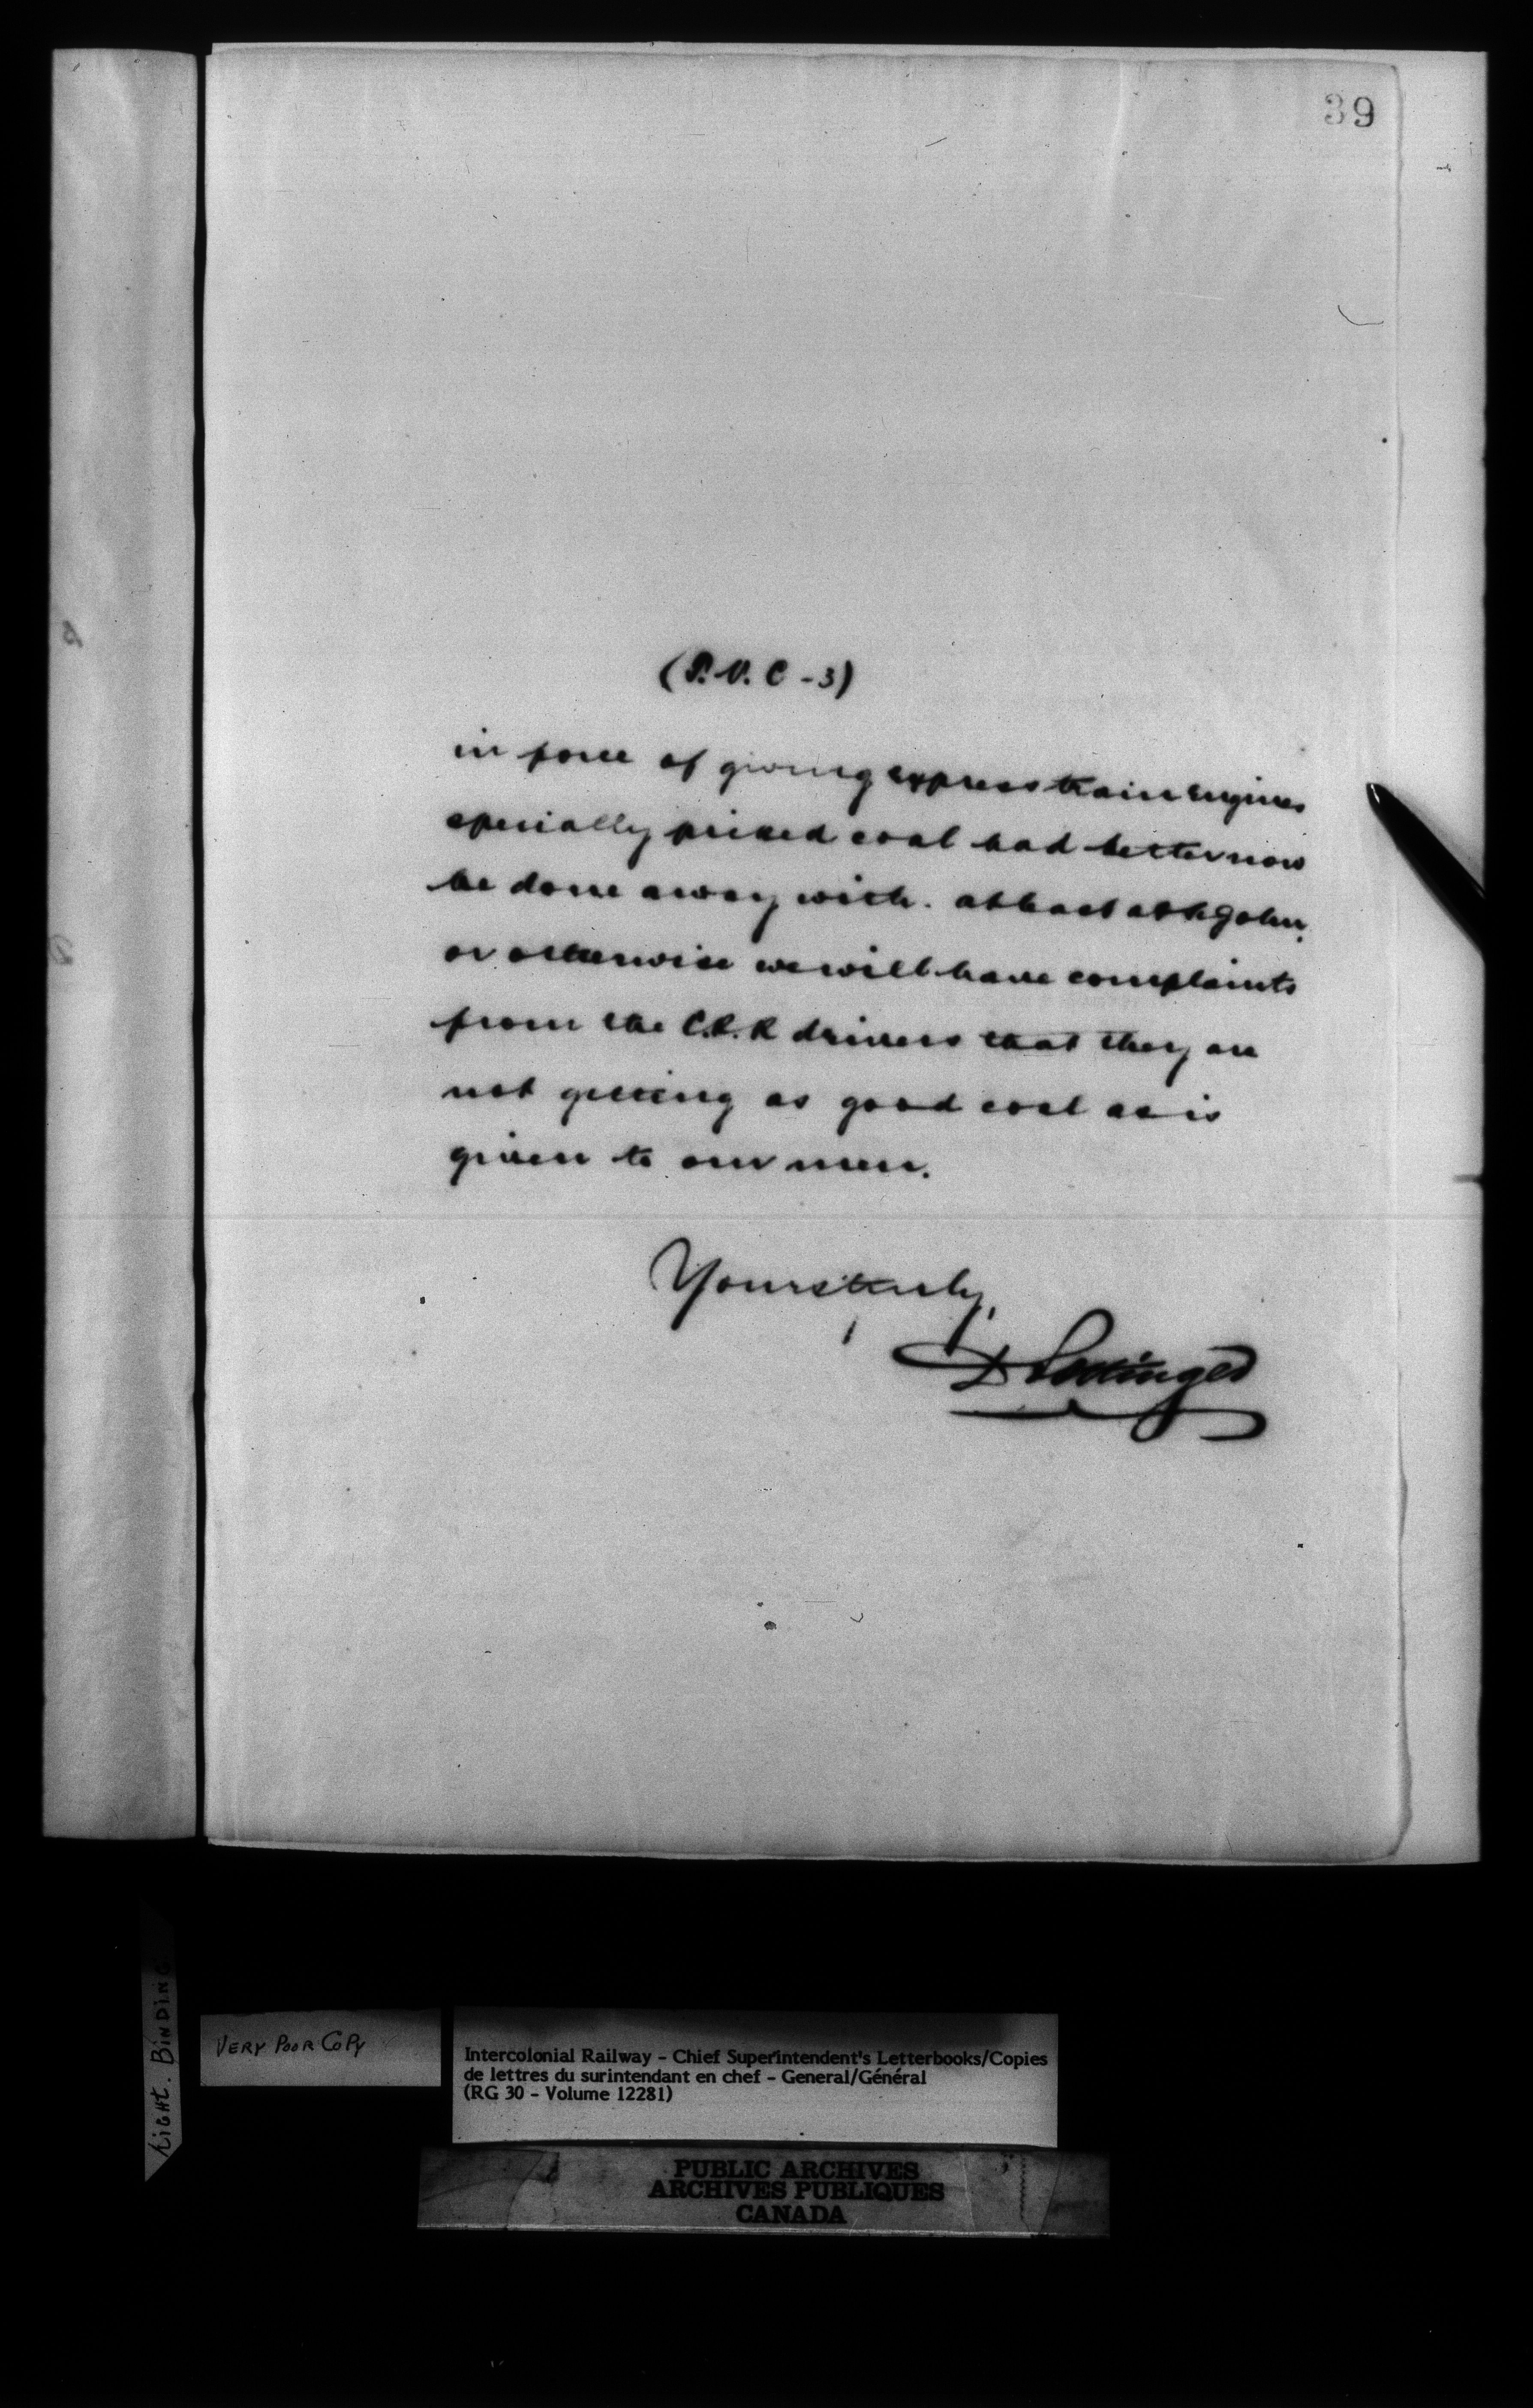 39
(P.V.C - 3)
in force of giving express train engines
specially picked coal had better now
be done away with. at least at St John,
or otherwise we will have complaints
from the C.P.R drivers that they are
not getting as good coal as is
given to our men.
Yours truly,
D Pottinger
LIGHT. BINDING
VERY POOR COPY
Intercolonial Railway - Chief Superintendent's Letterbooks/Copies
de lettres du surintendant en chef - General/Général
(RG 30 - Volume 12281)
PUBLIC ARCHIVES
ARCHIVES PUBLIQUES
CANADA